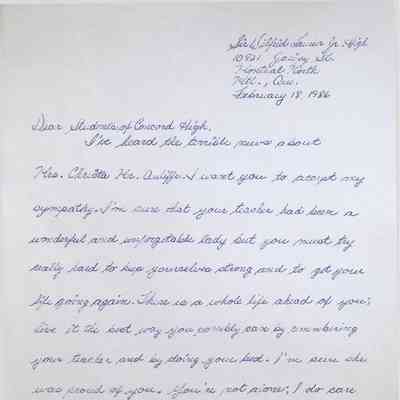 Sir Wilfrid Laurier Jr. High
10921 St.
Montréal North
Mtl., Que.
February 18, 1986
Dear Students of Concord High,
I've heard the terrible news about
Mrs. Christa Mc. Auliffe. I want you to accept my
sympathy. I'm sure that your teacher had been a
wonderful and unforgetable lady but you must try
really hard to keep yourselves strong and to get your
life going again. There is a whole life ahead of you;
live it the best way you possibly can by remembering
your teacher and by doing your best. I'm sure she
was proud of you. You're not alone; I do care